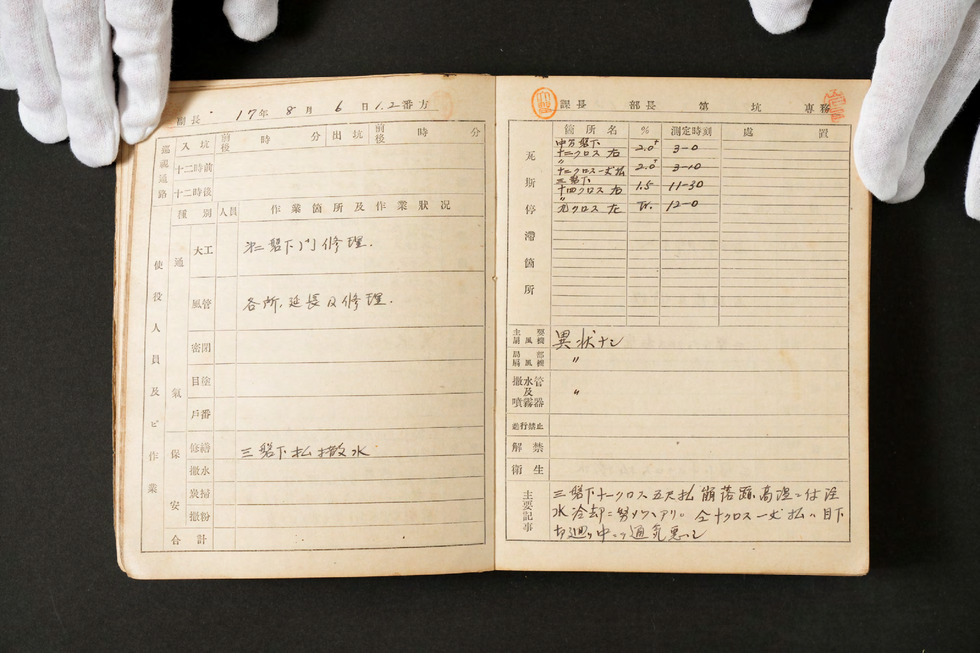 副長 17年 8月 6日 1.2番方
巡視通路 入坑 前後 時 分 出坑 前後 時 分
十二時前
十二時後
種別 人員 作業箇所及作業狀況
使役人員及ビ作業
通氣
大工 第二盤下門修理.
風管 各所,延長及修理.
密閉
目塗
戶番
保安
修繕 三盤下払撒水
撒水
炭掃
撒粉
合計
課長 部長 第 坑 專務
瓦斯停滯箇所
箇所名 % 測定時刻 處置
中万盤下
十二クロス右 2.0+ 3-0
〃
十二クロス一丈払 2.0+ 3-10
三盤下
十四クロス右 1.5 11-30
〃
元クロス左 Tr. 12-0
主要扇風機 異狀ナシ
局部扇風機 〃
撒水管及噴霧器 〃
進行禁止
解禁
衛生
主要記事
三盤下十一クロス五尺払崩落跡高温
水冷却ニ努メツヽアリ。 仝十クロス一丈払ハ目下
中ニツ通気悪シ